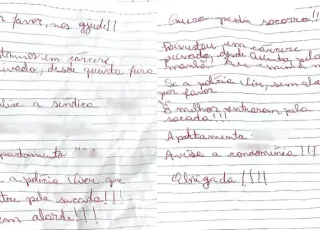 favor, nos ajude!!
estamos em cárcere
privado, desde quinta feira
Avise a síndica
apartamento
a polícia vier que
entre pela sacada!!!
sem alarde!!!
Quero pedir socorro!!
em cárcere
privado, desde quinta pela
manhã. Eu e minha
Se a polícia vier, sem
por favor
É melhor entrarem pela
sacada!!!
Apartamento
Avise a
Obrigada!!!!